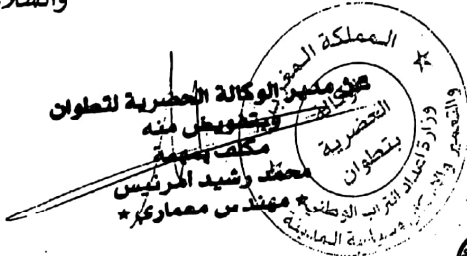 والسلا
عن مدير الوكالة الحضرية لتطوان
وبتفويض منه
مكلف بمهمة
محمد رشيد المرنيسي
* مهندس معماري *
المملكة المغ
الوكالة
الحضرية
بتطوان
وزارة إعداد التراب الوطني
والتعمير والإسكان وسياسة المدينة